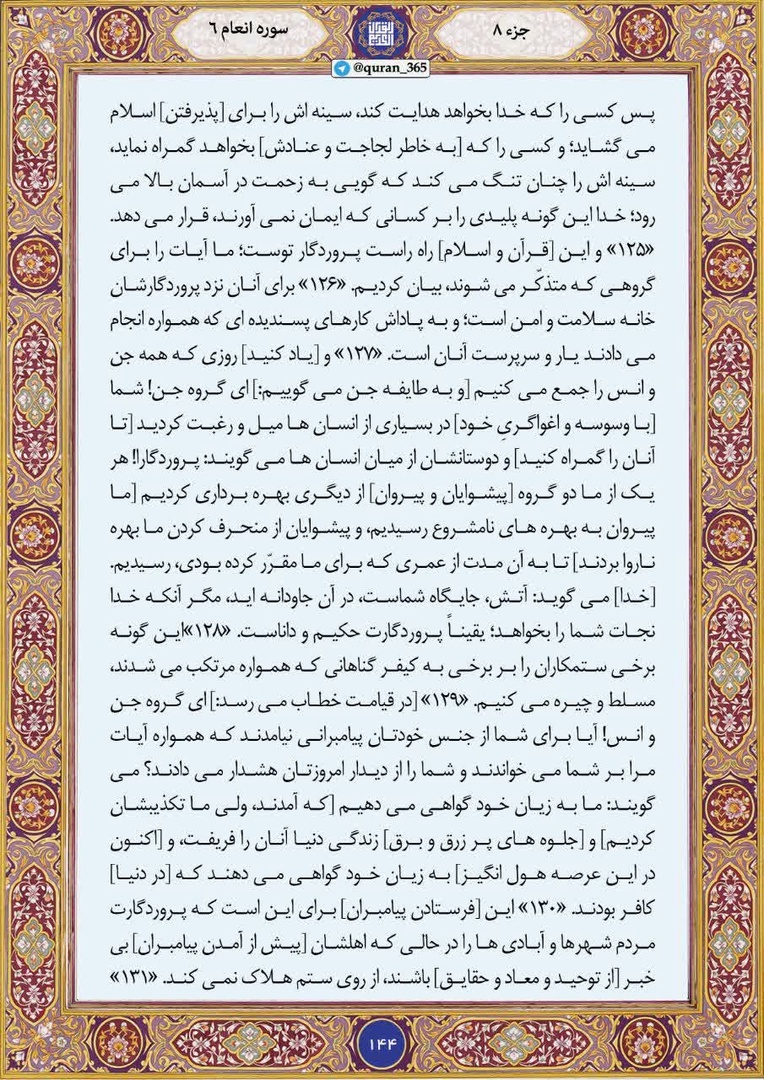 جزء ۸
سوره انعام ۶
@quran_365
پس کسی را که خدا بخواهد هدایت کند، سینه اش را برای [پذیرفتن] اسلام
می گشاید؛ و کسی را که [به خاطر لجاجت و عنادش] بخواهد گمراه نماید،
سینه اش را چنان تنگ می کند که گویی به زحمت در آسمان بالا می
رود؛ خدا این گونه پلیدی را بر کسانی که ایمان نمی آورند، قرار می دهد.
«۱۲۵» و این [قرآن و اسلام] راه راست پروردگار توست؛ ما آیات را برای
گروهی که متذکّر می شوند، بیان کردیم. «۱۲۶» برای آنان نزد پروردگارشان
خانه سلامت و امن است؛ و به پاداش کارهای پسندیده ای که همواره انجام
می دادند یار و سرپرست آنان است. «۱۲۷» و [یاد کنید] روزی که همه جن
و انس را جمع می کنیم [و به طایفه جن می گوییم:] ای گروه جن! شما
[با وسوسه و اغواگریِ خود] در بسیاری از انسان ها میل و رغبت کردید [تا
آنان را گمراه کنید] و دوستانشان از میان انسان ها می گویند: پروردگارا! هر
یک از ما دو گروه [پیشوایان و پیروان] از دیگری بهره برداری کردیم [ما
پیروان به بهره های نامشروع رسیدیم، و پیشوایان از منحرف کردن ما بهره
ناروا بردند] تا به آن مدت از عمری که برای ما مقرّر کرده بودی، رسیدیم.
[خدا] می گوید: آتش، جایگاه شماست، در آن جاودانه اید، مگر آنکه خدا
نجات شما را بخواهد؛ یقیناً پروردگارت حکیم و داناست. «۱۲۸»این گونه
برخی ستمکاران را بر برخی به کیفر گناهانی که همواره مرتکب می شدند،
مسلط و چیره می کنیم. «۱۲۹» [در قیامت خطاب می رسد:] ای گروه جن
و انس! آیا برای شما از جنس خودتان پیامبرانی نیامدند که همواره آیات
مرا بر شما می خواندند و شما را از دیدار امروزتان هشدار می دادند؟ می
گویند: ما به زیان خود گواهی می دهیم [که آمدند، ولی ما تکذیبشان
کردیم] و [جلوه های پر زرق و برق] زندگی دنیا آنان را فریفت، و [اکنون
در این عرصه هول انگیز] به زیان خود گواهی می دهند که [در دنیا]
کافر بودند. «۱۳۰» این [فرستادن پیامبران] برای این است که پروردگارت
مردم شهرها و آبادی ها را در حالی که اهلشان [پیش از آمدن پیامبران] بی
خبر [از توحید و معاد و حقایق] باشند، از روی ستم هلاک نمی کند. «۱۳۱»
۱۴۴